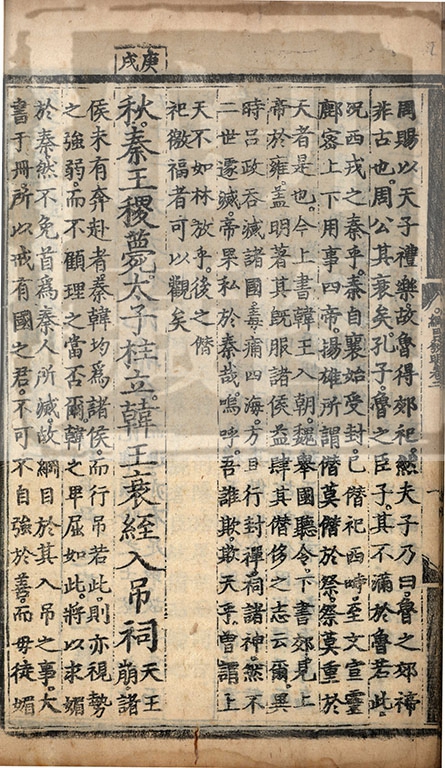 庚戌
周賜以天子禮樂故魯得郊祀然夫子乃曰魯之郊禘
非古也周公其衰矣孔子魯之臣子其不滿於魯若此
况西戎之秦乎秦自襄始受封已僭祀西畤至文宣靈
鄜密上下用事四帝揚雄所謂僭莫僭於祭祭莫重於
天者是也今上書韓王入朝魏舉國聽令下書郊見上
帝於雍蓋明著其既服諸侯益肆其僭侈之志云爾異
時呂政吞滅諸國毒痡四海方且行封禪祠諸神然不
二世遽滅帝果私於秦哉嗚呼吾誰欺欺天乎曾謂上
天不如林放乎後之僭
祀徼福者可以觀矣
秋秦王稷薨太子柱立韓王衰絰入吊祠天王崩諸
侯未有奔赴者秦韓均爲諸侯而行吊若此則亦視勢
之強弱而不顧理之當否爾韓之卑屈如此將以求媚
於秦然不免首爲秦人所滅故綱目於其入吊之事大
書于冊所以戒有國之君不可不自強於善而毋徒媚